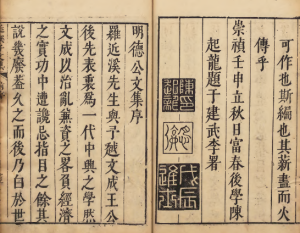 可作也斯編也其薪盡而火
傳乎
崇禎壬申立秋日富春後學陳
起龍題于建武李署
戊辰進士
明德公文集序
羅近溪先生與予越文成王公
後先表裏為一代中興之學然
文成以治亂兼資之畧負經濟
之實功中遭讒忌指目之餘其
說幾廢蓋久之而後乃白於世